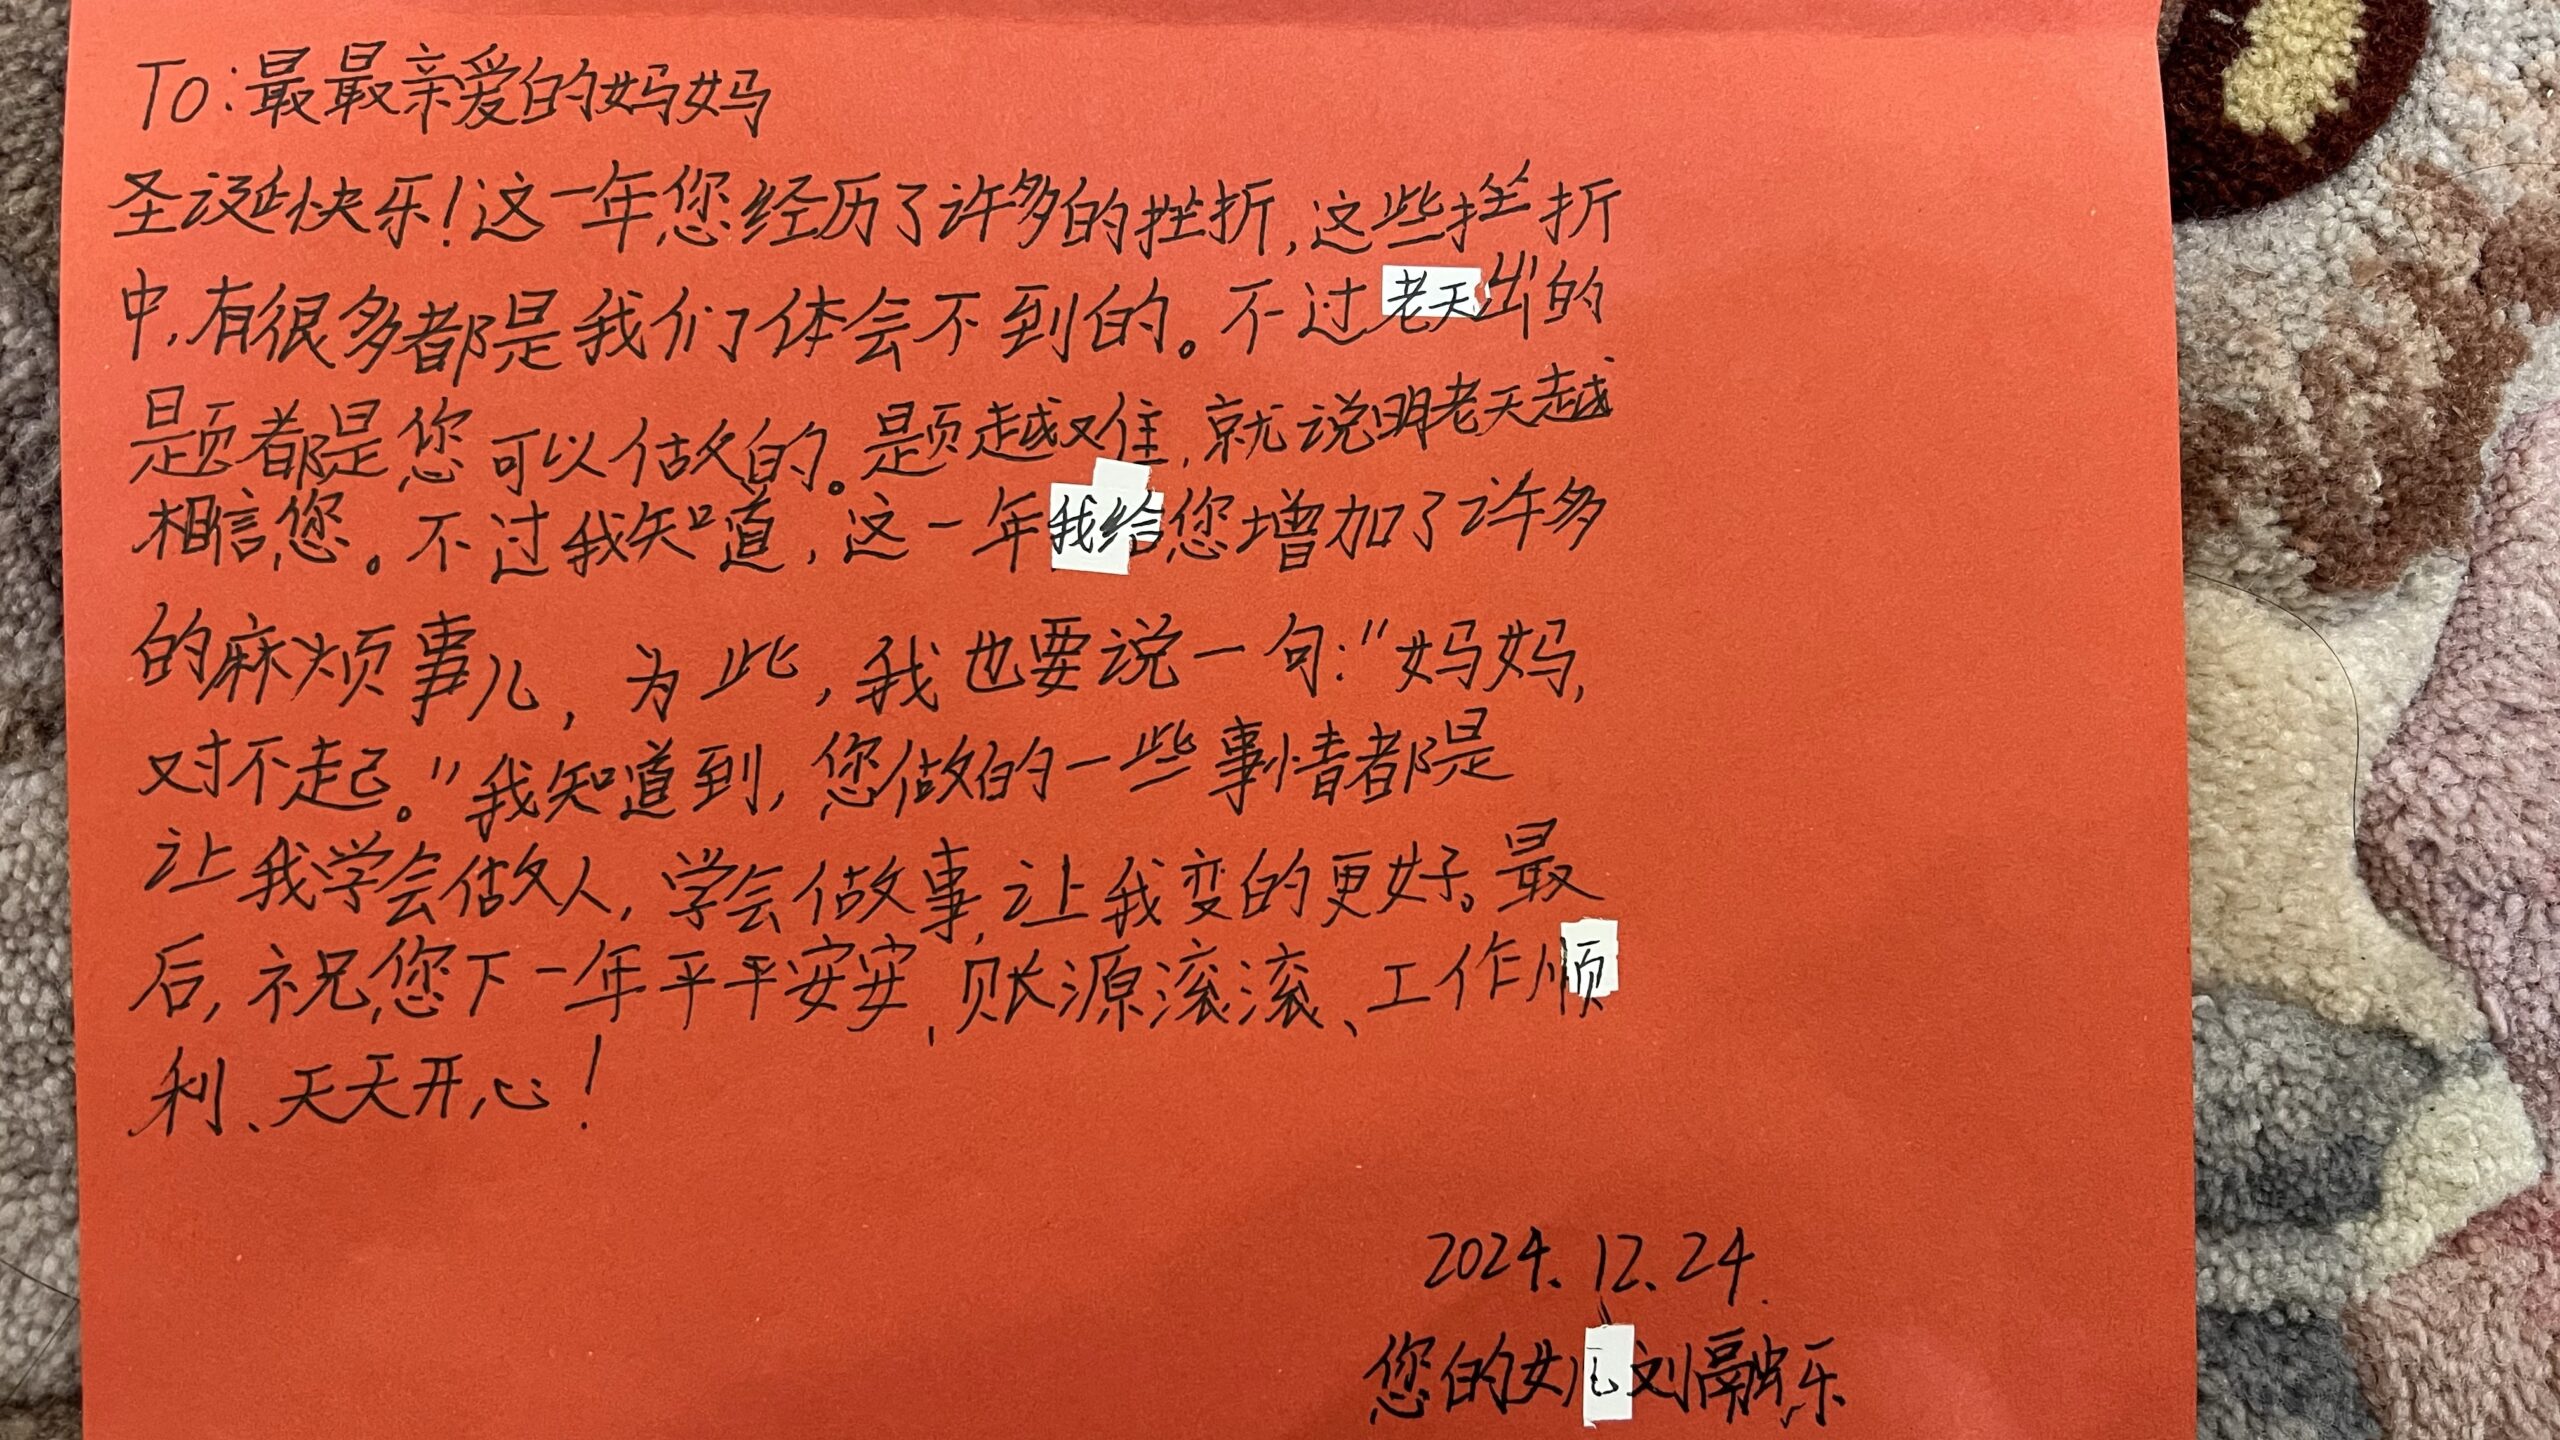 To:最最亲爱的妈妈
圣诞快乐!这一年,您经历了许多的挫折,这些挫折
中,有很多都是我们体会不到的。不过老天出的
题都是您可以做的。题越难,就说明老天越
相信您。不过我知道,这一年我给您增加了许多
的麻烦事儿,为此,我也要说一句:"妈妈,
对不起。"我知道到,您做的一些事情都是
让我学会做人,学会做事,让我变的更好。最
后,祝您下一年平平安安,财源滚滚、工作顺
利、天天开心!
2024.12.24.
您的女儿刘融乐